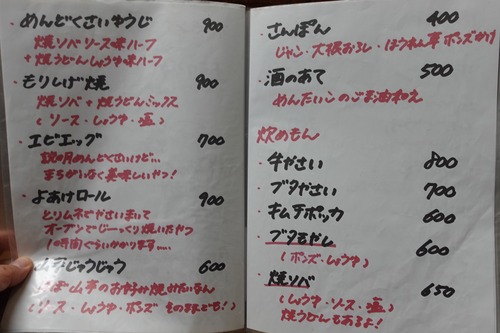 めんどくさいゆうじ 900
焼ソバソース味ハーフ
+焼うどんしょうゆ味ハーフ
・もりしげ焼 900
焼ソバ+焼うどんミックス
(ソース・しょうゆ・塩)
・エビエッグ 700
説明めんどくさいけど…
まちがいなく美味しいやつ!
・よあけロール 900
とりムネでやさいまいて
オーブンでじっくり焼いたやつ
10時間ぐらいかかります……
じゅうじゅう 600
山芋のお好み焼みたいなん
(ソース・しょうゆ・ポンズ そのままでも!)
・さんぽん 400
じゃこ・大根おろし・ほうれん草ポンズかけ
・酒のあて 500
めんたいこのごま油和え
炒めもん
・牛やさい 800
・ブタやさい 700
・キムチポッカ 600
・ブタもやし 600
(ポンズ・しょうゆ)
・焼ソバ 650
(しょうゆ・ソース・塩)
焼うどんもあるよ!